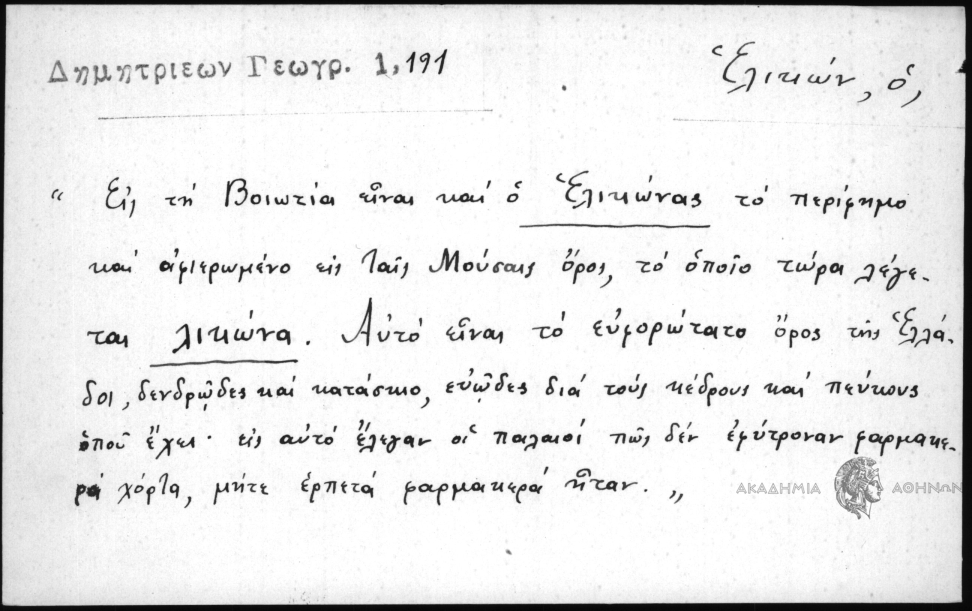 Δημητριεων Γεωγρ. 1, 191
Ἑλικών, ὁ,
“ Εἰς τή Βοιωτία εἶναι καί ὁ Ἑλικώνας τό περίφημο
καί ἀφιερωμένο εἰς ταῖς Μούσαις ὄρος, τό ὁποῖο τώρα λέγε-
ται λικώνα. Αὐτό εἶναι τό εὐφορώτατο ὄρος τῆς Ἑλλά-
δος, δενδρῶδες καί κατάσκιο, εὐῶδες διά τούς κέδρους καί πεύκους
ὁποῦ ἔχει· εἰς αὐτό ἔλεγαν οἱ παλαιοί πῶς δέν ἐφύτροναν φαρμακε-
ρά χόρτα, μήτε ἑρπετά φαρμακερά ἦταν. „
ΑΚΑΔΗΜΙΑ ΑΘΗΝΩΝ